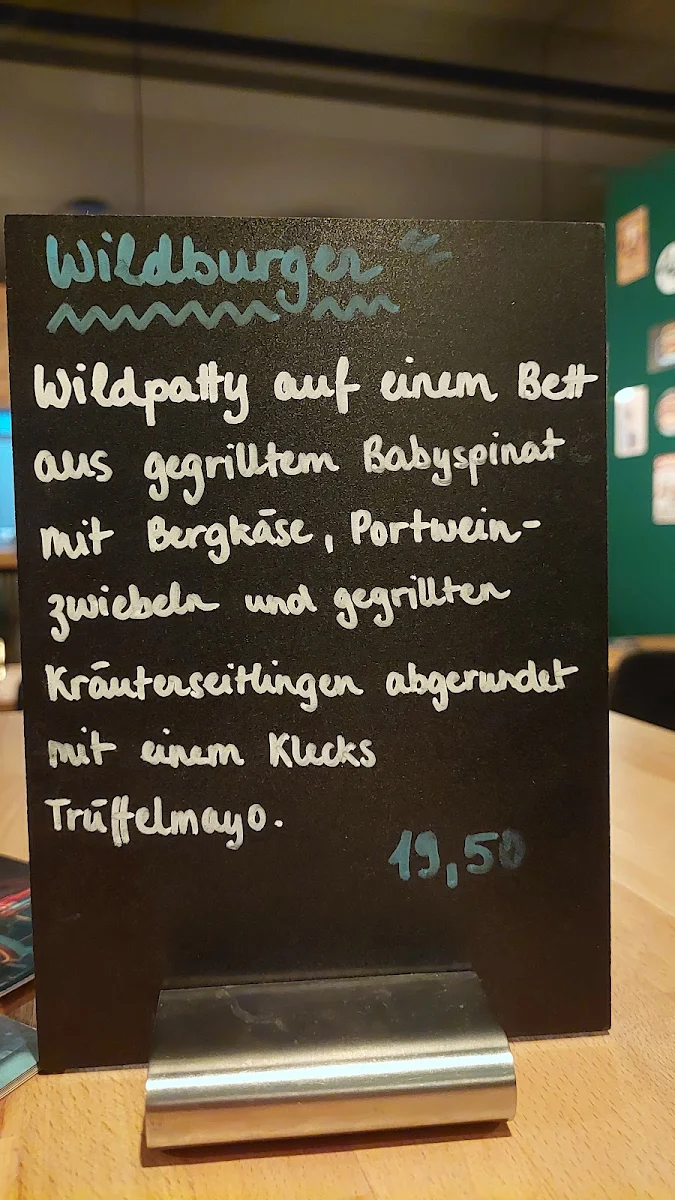 Wildburger
Wildpatty auf einem Bett
aus gegrilltem Babyspinat
mit Bergkäse, Portwein-
zwiebeln und gegrillten
Kräuterseitlingen abgerundet
mit einem Klecks
Trüffelmayo.
19,50